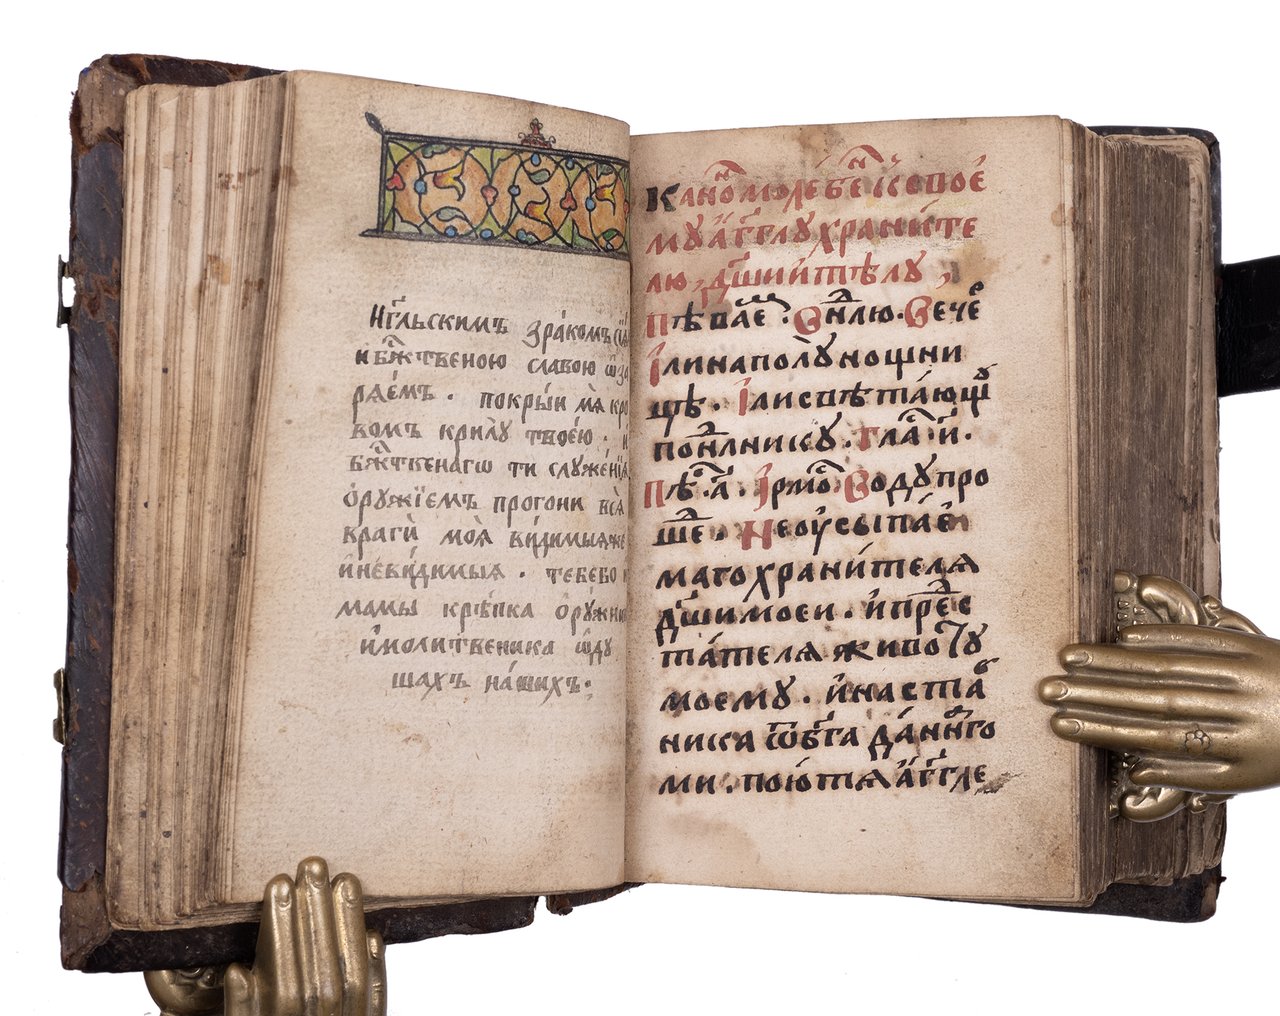 Нг҃льскимъ зра́комъ сїѧ́
и бж҃твеною славою ѡ҆за
рѧе́мъ . покры́и мѧ̀ кро
вомъ крилꙋ̀ твоє́ю . и҆
бж҃твенагѡ ти слꙋже́нїѧ
ѻ҆рꙋ́жїемъ прогони всѧ̀
враги̇̀ моѧ̀ ви́димыѧже
и҆неви́димыѧ . тебебо и҆
мамы крѣпка ѻ҆рꙋ́жни
и҆молитвеника ѡ҆дꙋ
шахъ на́шихъ :
Кано́ⷩ҇ моле́бенⷩ҇ к своє
мꙋ а҆́гг҃лꙋ храни́те
лю , дш҃и и҆ тѣлꙋ ,
Пѣваеⷨ҇ . вне҃лю . Вече́
ꙇлинаполꙋнощни
цѣ . ꙇлисвѣта́ющꙋ
понл҃никꙋ . глаⷭ҇ и҃ .
Пѣⷭ҇ . а҃ . ꙇрмоⷭ҇ . Водꙋ про
шеⷣ . Неоусыпа́е
маго храни́телѧ
дш҃и моеи . и҆ преⷣс
та́телѧ животꙋ
моемꙋ . и҆наста́в
ника ѿбг҃а да́ннаго
ми . пою́ тѧ а҆́гг҃ле